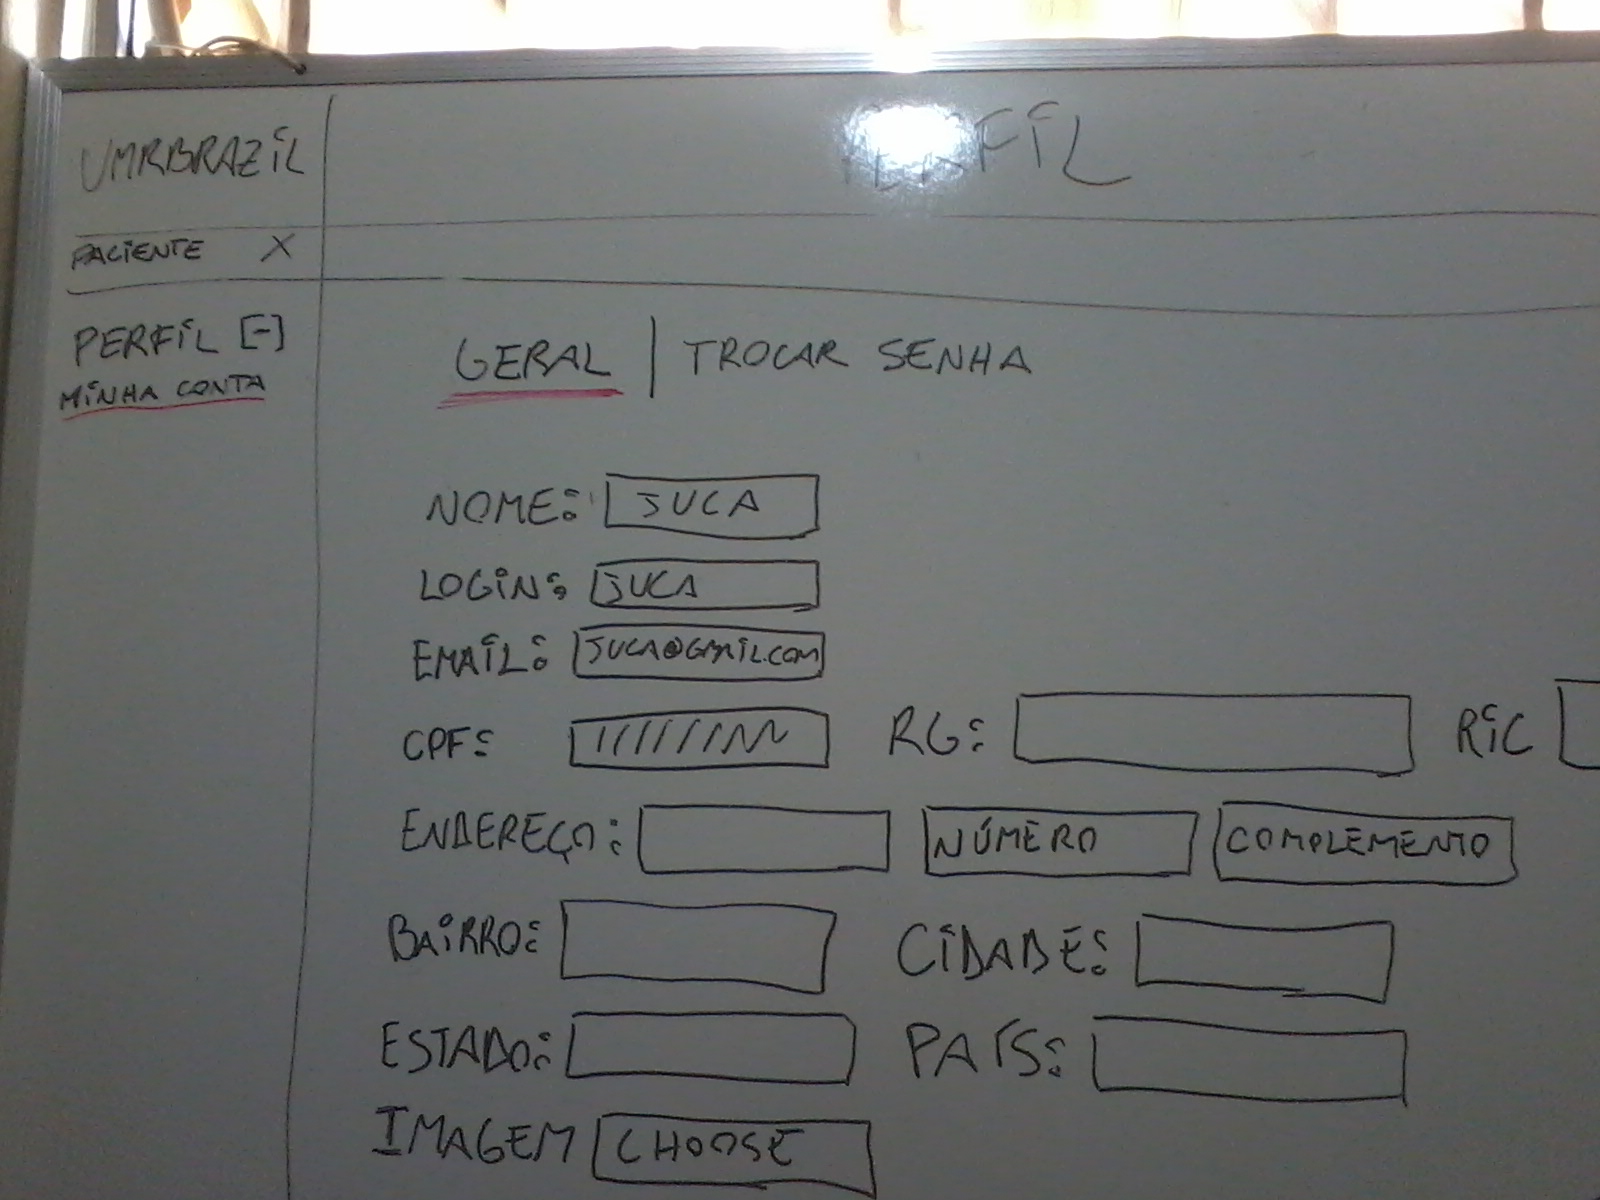 UMRBRAZIL
PERFIL
PACIENTE X
PERFIL [-]
MINHA CONTA
GERAL | TROCAR SENHA
NOME: JUCA
LOGIN: JUCA
EMAIL: JUCA@GMAIL.COM
CPF: RG: RIC
ENDEREÇO: NÚMERO COMPLEMENTO
BAIRRO: CIDADE:
ESTADO: PAÍS:
IMAGEM CHOOSE